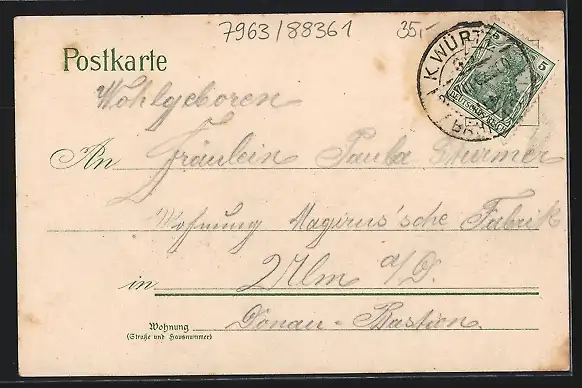 7963/88361 35,-
Postkarte
K. WÜRTT.
5
DEUTSCHES REICH
Wohlgeboren
An Fräulein Paula Sturmer
Wohnung Magirus'sche Fabrik
in Ulm a/D.
Wohnung Donau-Bastion.
(Straße und Hausnummer)